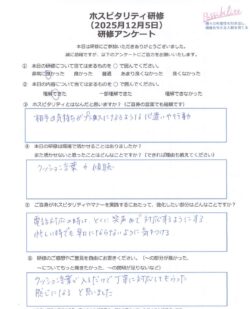 ホスピタリティ研修
(2025月12月5日)
研修アンケート
本日は研修にご参加いただきありがとうございました。
① 本日の研修について当てはまるものを○で囲んでください。
非常に良かった 良かった 普通 あまり良くなかった 良くなかった
② 本日の内容について当てはまるものを○で囲んでください。
理解できた 一部理解できた 理解できなかった
③ ホスピタリティとはなんだと思いますか?(ご自身の言葉でも結構です)
相手の気持ちが
④ 本日の研修で活かせることはありましたか?
また活かせないと思ったことはどんなことですか?(できれば理由も教えてください)
クッション言葉
⑤ ご自身がホスピタリティやマナーを実践するにあたって、強化したい部分はどんなことですか?
電話対応の時は、とくに笑声で対応するようにする
忙しい時でも早口にならないように気をつける
⑥ 研修のご感想やご意見を自由にお書きください。
クッション言葉が入るだけで丁寧に対応してもらった
感じになると思いました